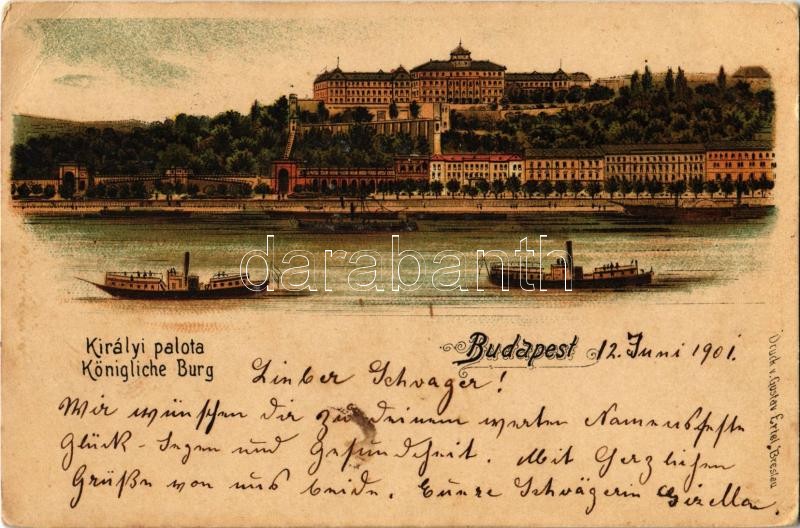 darabanth
Királyi palota
Königliche Burg
Budapest 12. Juni 1901.
Druck v. Gustav Ertel, Breslau
Linber Schvager!
Wir wünschen dir zu deinem werten Namensfeste
Glück - Segen und Gesundheit. Mit Herzlichen
Grüße von uns beide. Eure Schvägerin Gizella.